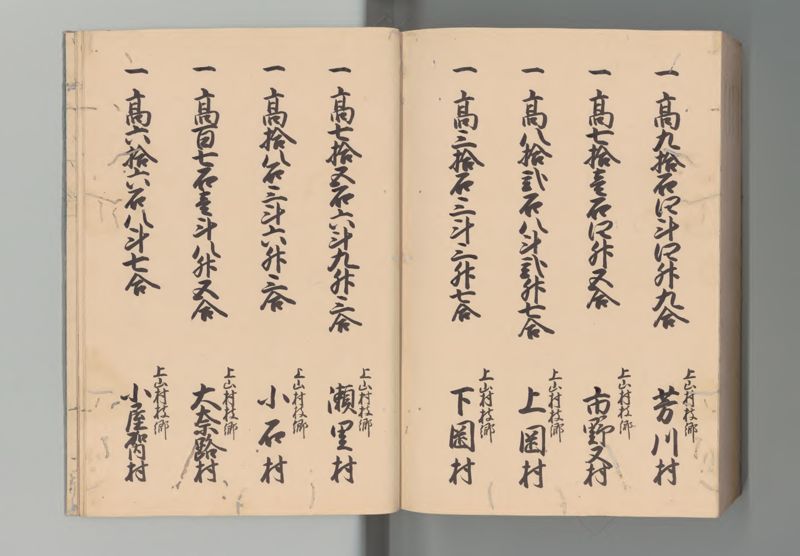 一 高九拾石四斗四升九合
上山村枝郷
芳川村
一 高七拾壱石四升五合
上山村枝郷
市野又村
一 高八拾弐石八斗弐升七合
上山村枝郷
上岡村
一 高三拾石三斗三升七合
上山村枝郷
下岡村
一 高七拾五石六斗九升三合
上山村枝郷
瀬里村
一 高拾八石三斗六升三合
上山村枝郷
小石村
一 高百七石壱斗八升五合
上山村枝郷
大奈路村
一 高六拾六石八斗七合
上山村枝郷